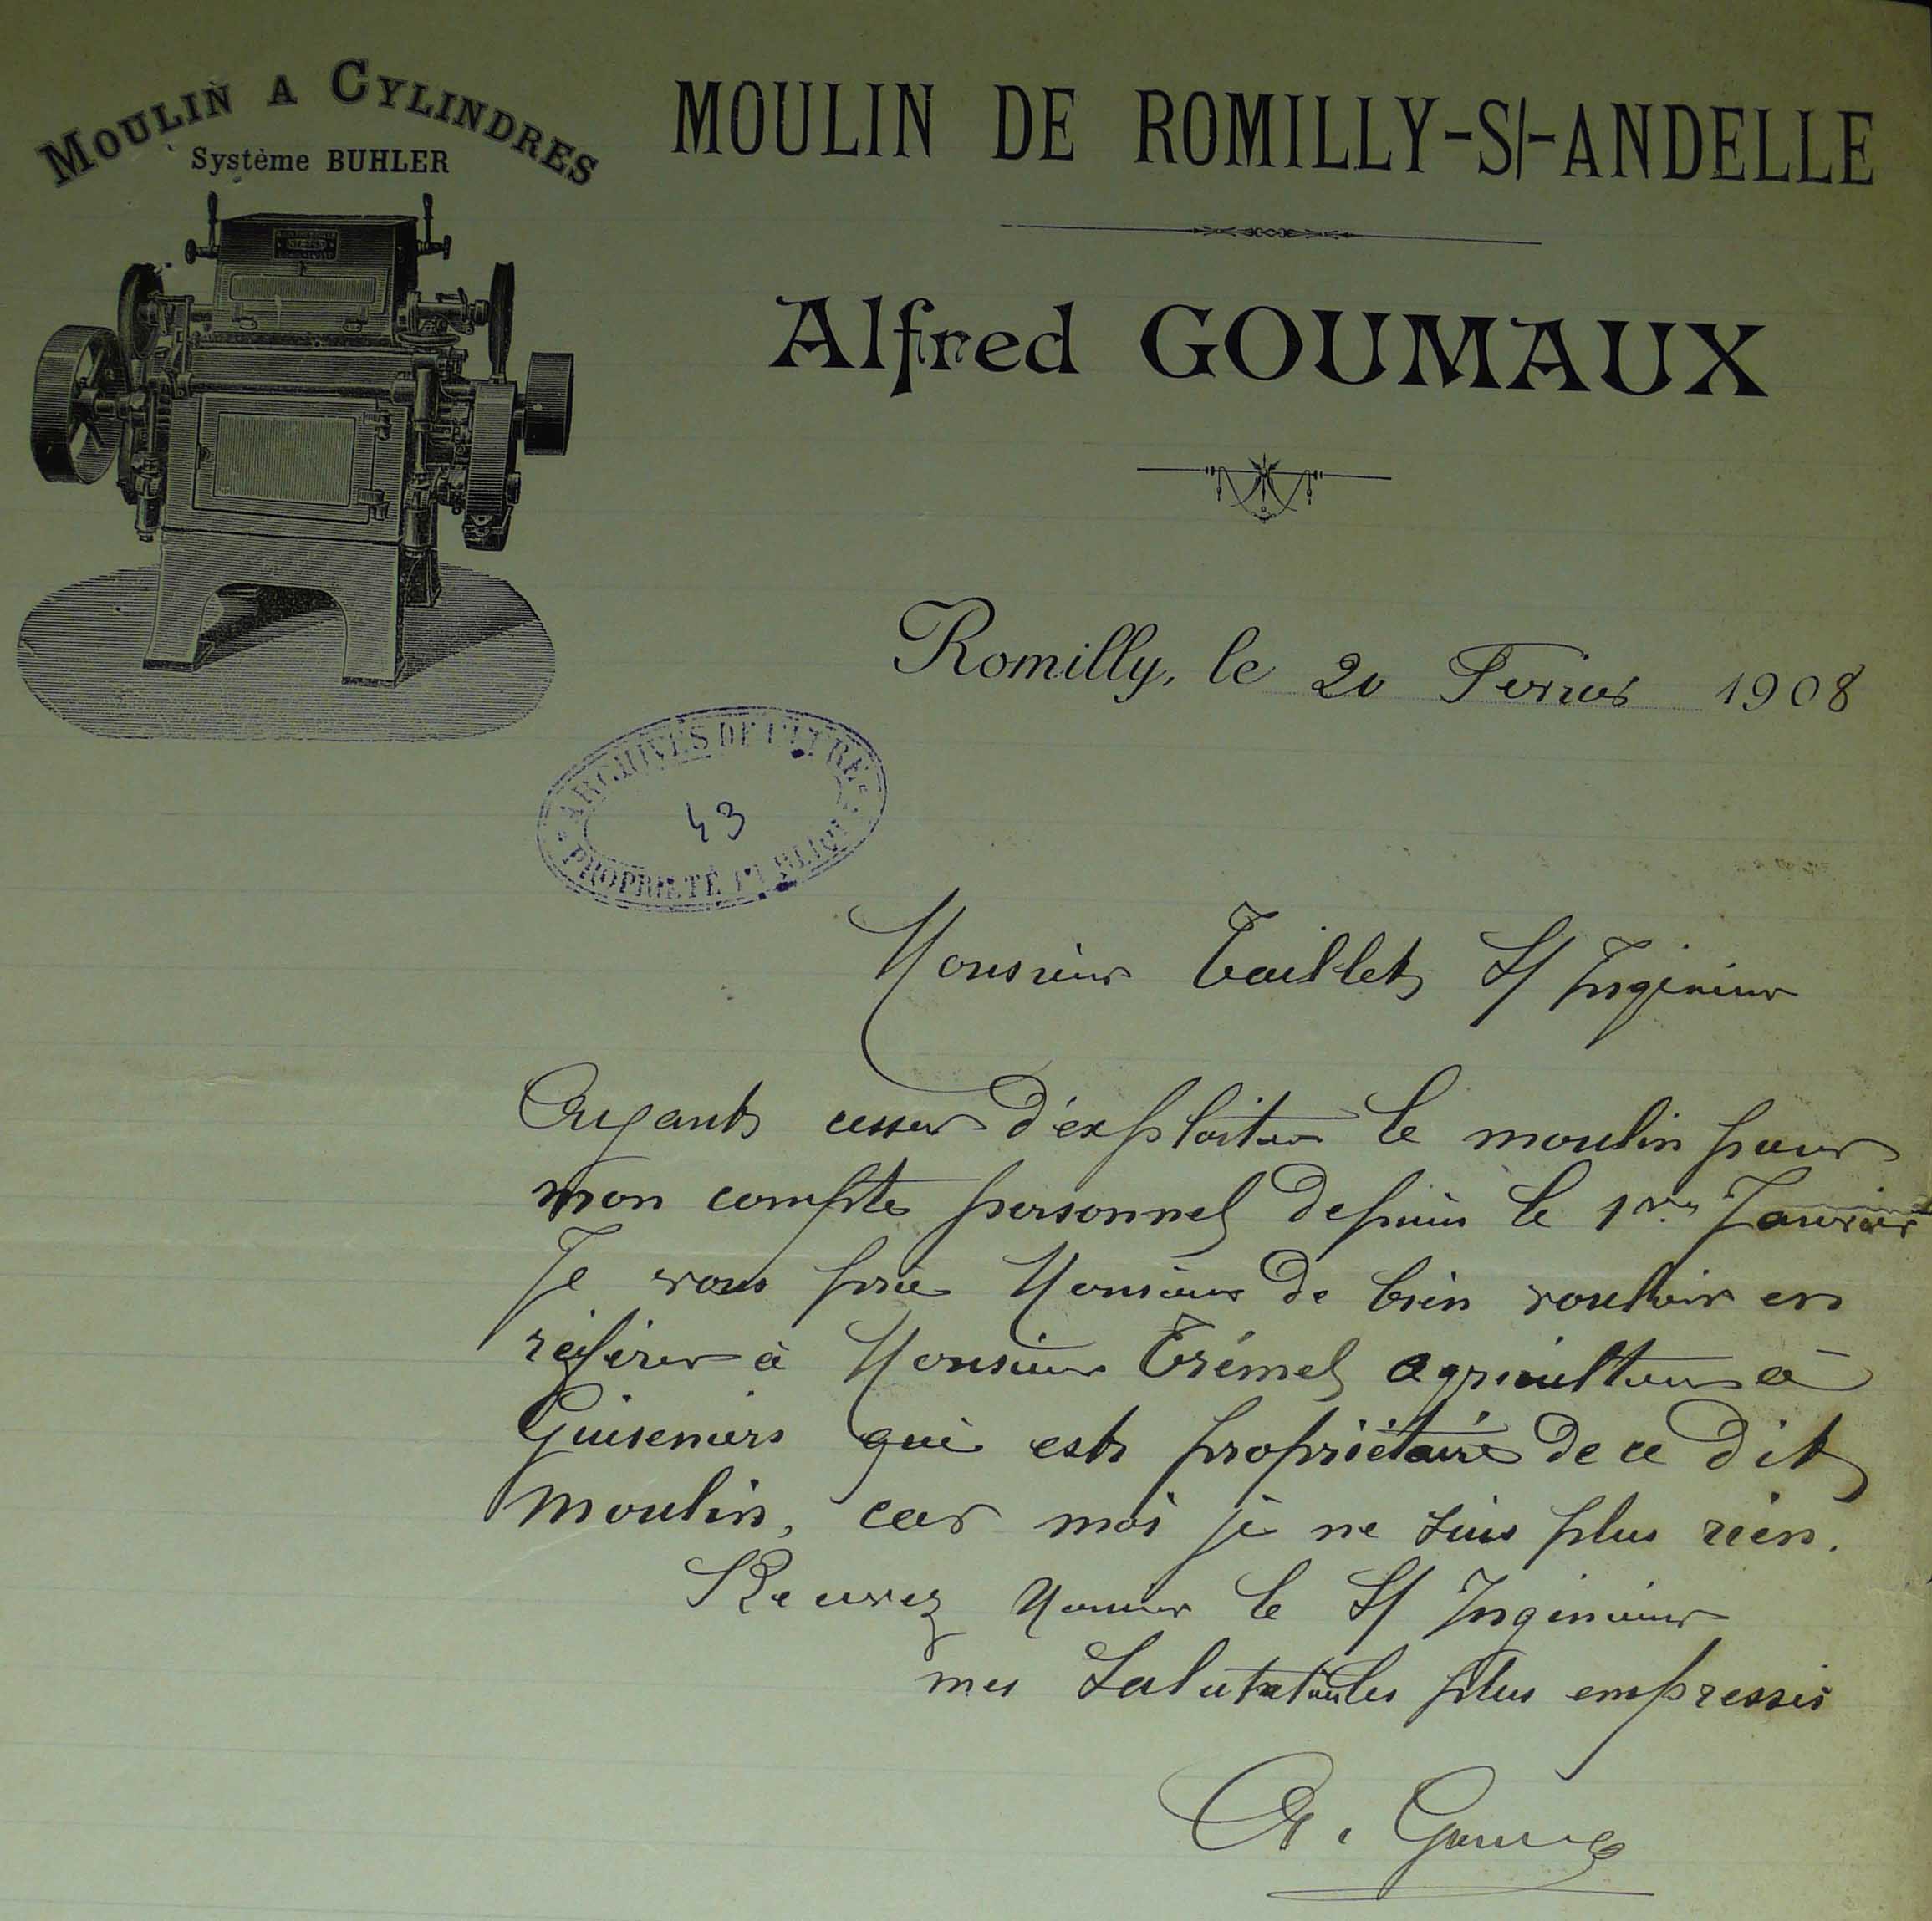 MOULIN A CYLINDRES
Système BUHLER
MOULIN DE ROMILLY-S/-ANDELLE
Alfred GOUMAUX
Romilly, le 20 Fevrier 1908
ARCHIVES DE L'EURE
43
PROPRIÉTÉ PUBLIQUE
Monsieur Taillet S/ Ingenieur
Ayant cesser d'exploiter le moulin pour
mon compte personnel depuis le 1er Janvier
Je vous prie Monsieur de bien vouloir en
réferer à Monsieur Trémel agriculteur à
Guiseniers qui est propriétaire de ce dit
moulin, car moi je ne suis plus rien.
Recevez Monsieur le S/ Ingenieur
mes Salutations les plus empressés
A. Goumaux